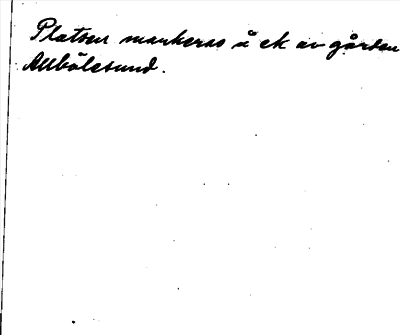 Platsen markeras å ek av gården
Allbölesund.